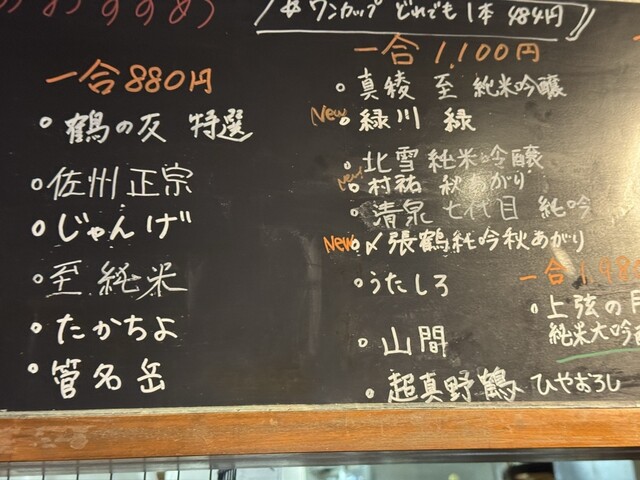 おすすめ
# ワンカップ どれでも 1本 484円
一合 880円
鶴の友 特選
佐州正宗
じゃんげ
至 純米
たかちよ
管名岳
一合 1,100円
真稜 至 純米吟醸
New 緑川 緑
北雪 純米吟醸
New 村祐 秋あがり
清泉 七代目 純吟
New 〆張鶴 純吟 秋あがり
うたしろ
山間
超真野鶴 ひやおろし
一合 1,98
上弦の月
純米大吟